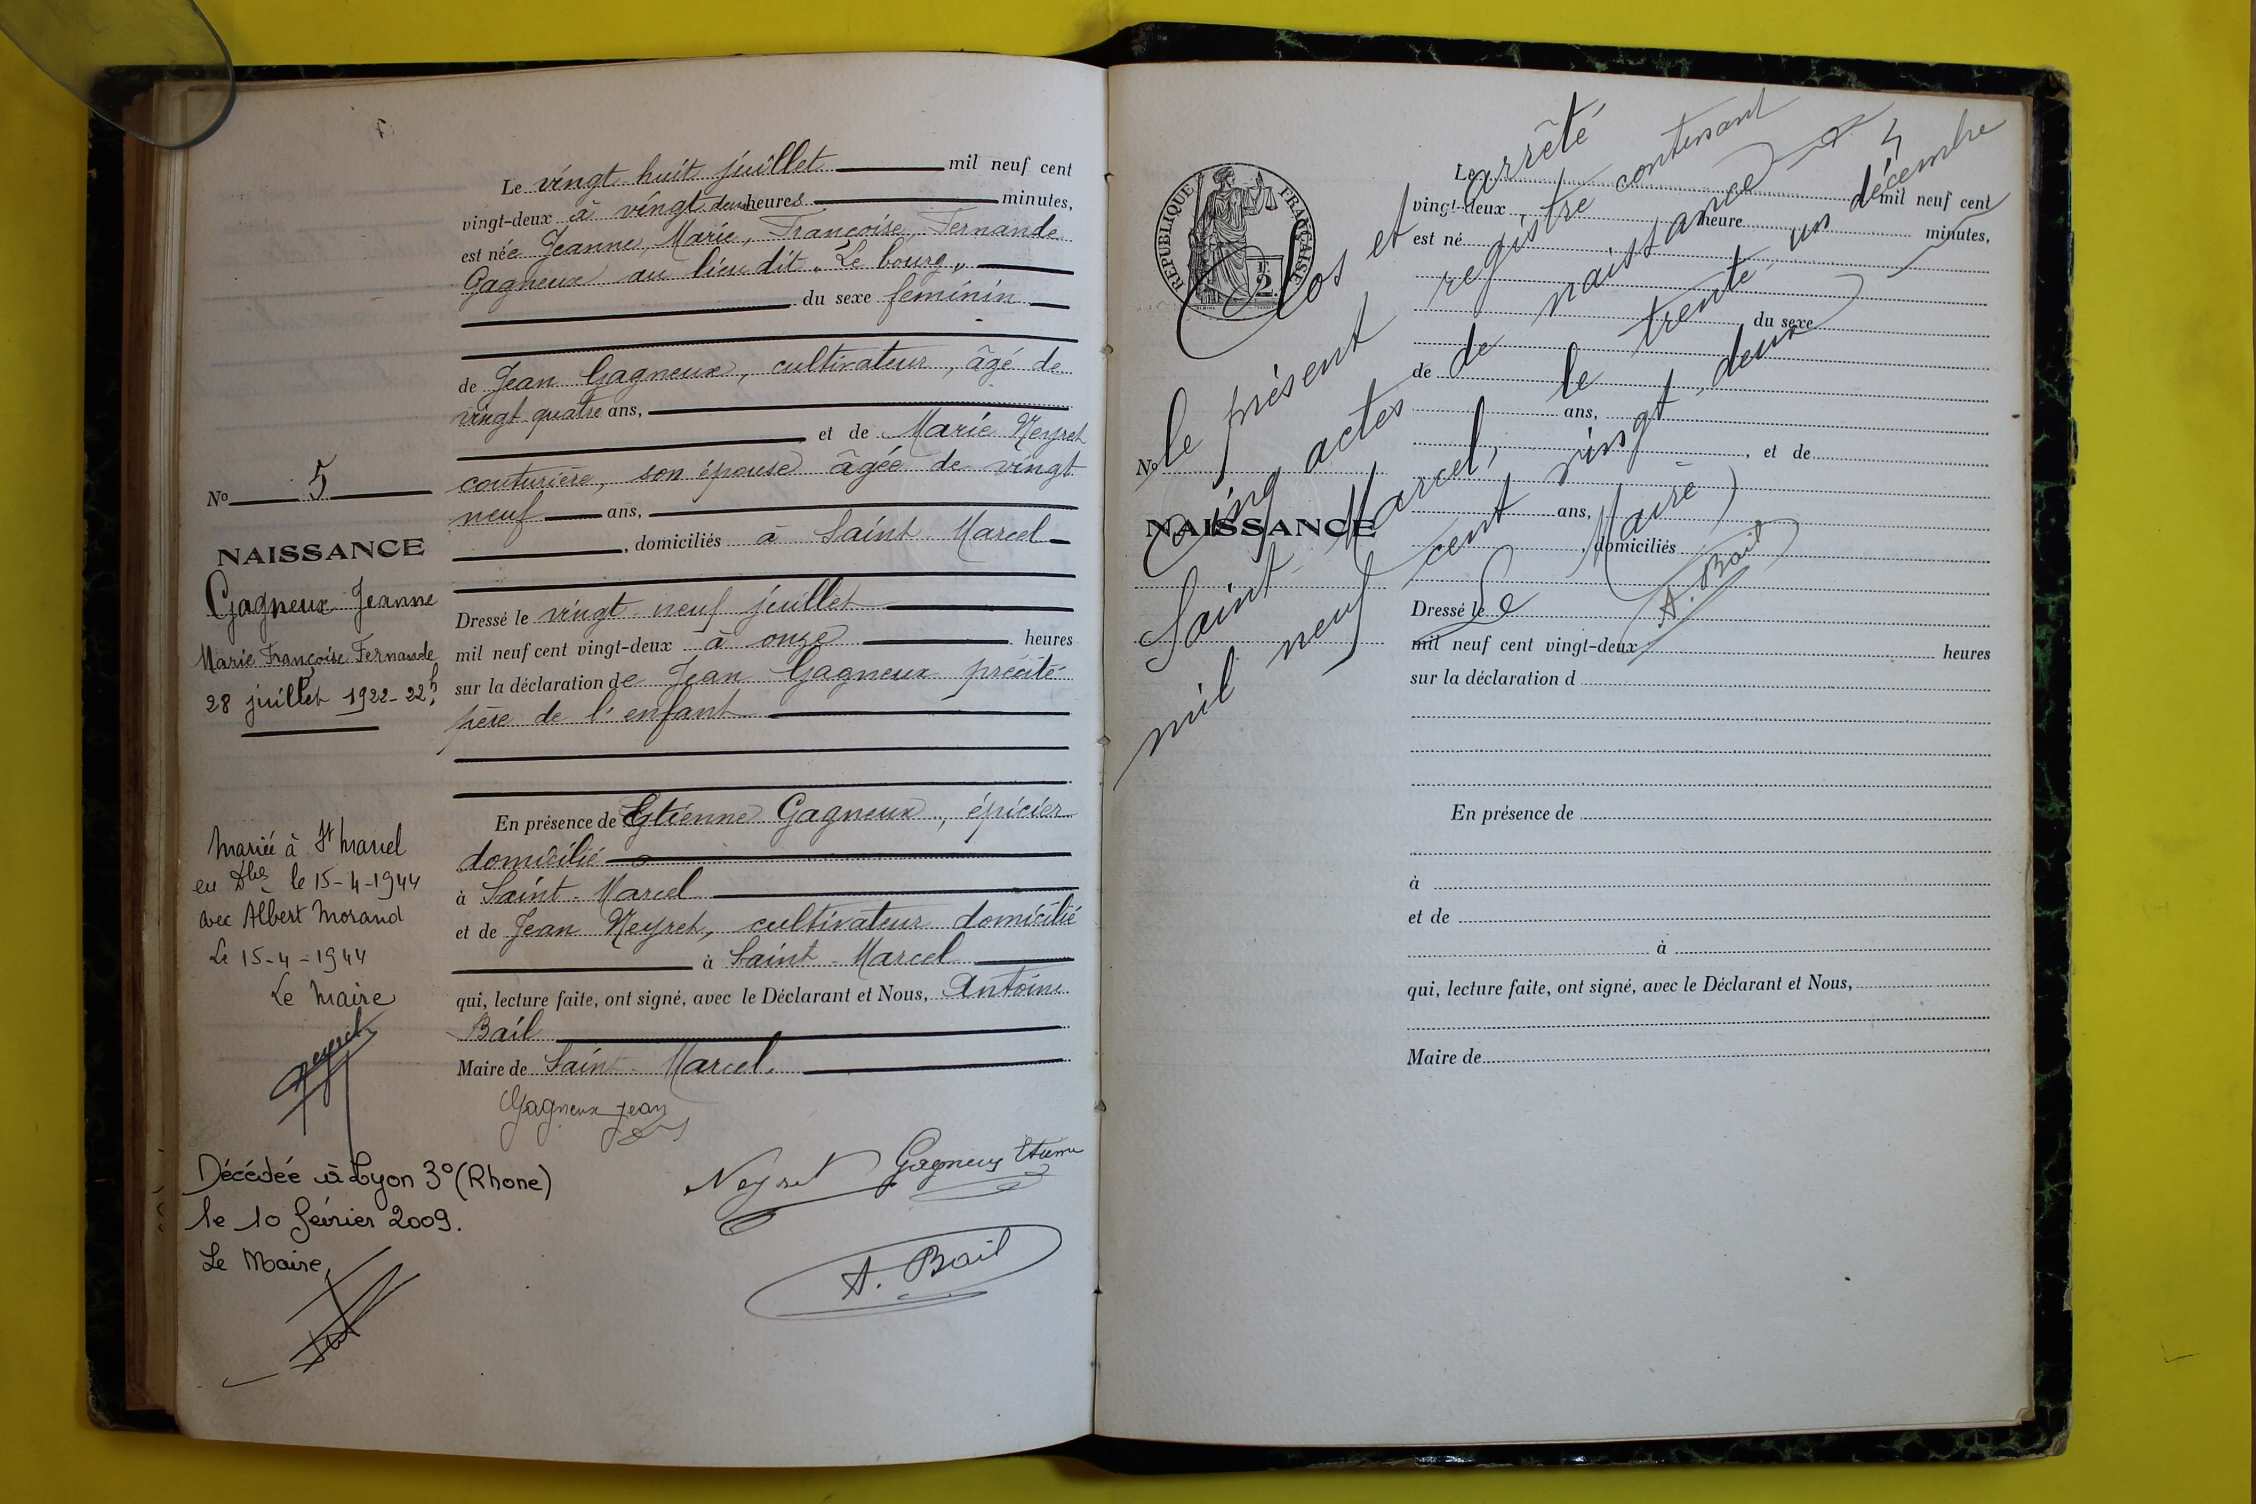 Le vingt huit juillet mil neuf cent
vingt-deux à vingt deux heures minutes,
est née Jeanne, Marie, Françoise, Fernande
Gagneux au lieu dit „Le bourg„
du sexe feminin
de Jean Gagneux, cultivateur, âgé de
vingt quatre ans,
et de Marie Neyret
couturière, son épouse âgée de vingt
neuf ans,
, domiciliés à Saint Marcel
Dressé le vingt neuf juillet
mil neuf cent vingt-deux à onze heures
sur la déclaration de Jean Gagneux précité
père de l'enfant
En présence de Etienne Gagneux, épicier
domicilié
à Saint-Marcel
et de Jean Neyret, cultivateur domicilié
à Saint-Marcel
qui, lecture faite, ont signé, avec le Déclarant et Nous, Antoine
Bail
Maire de Saint-Marcel.
Gagneux Jean
Neyret Gagneux Etienne
A. Bail
No 5
NAISSANCE
Gagneux Jeanne
Marie Françoise Fernande
28 juillet 1922-22h
Mariée à St Marcel
en Dbes le 15-4-1944
avec Albert Morand
Le 15-4-1944
Le Maire
Neyret
Décédée à Lyon 3° (Rhone)
le 10 février 2009.
Le Maire,
REPUBLIQUE FRANÇAISE
2
Clos et arrêté
le présent registre contenant
cinq actes de naissance
Saint-Marcel, le trente-un décembre
mil neuf cent vingt-deux
Le Maire
A. Bail
No
NAISSANCE
Le mil neuf cent
vingt-deux heure minutes,
est né
du sexe
de
ans,
, et de
ans,
, domiciliés
Dressé le
mil neuf cent vingt-deux heures
sur la déclaration d
En présence de
à
et de
à
qui, lecture faite, ont signé, avec le Déclarant et Nous,
Maire de